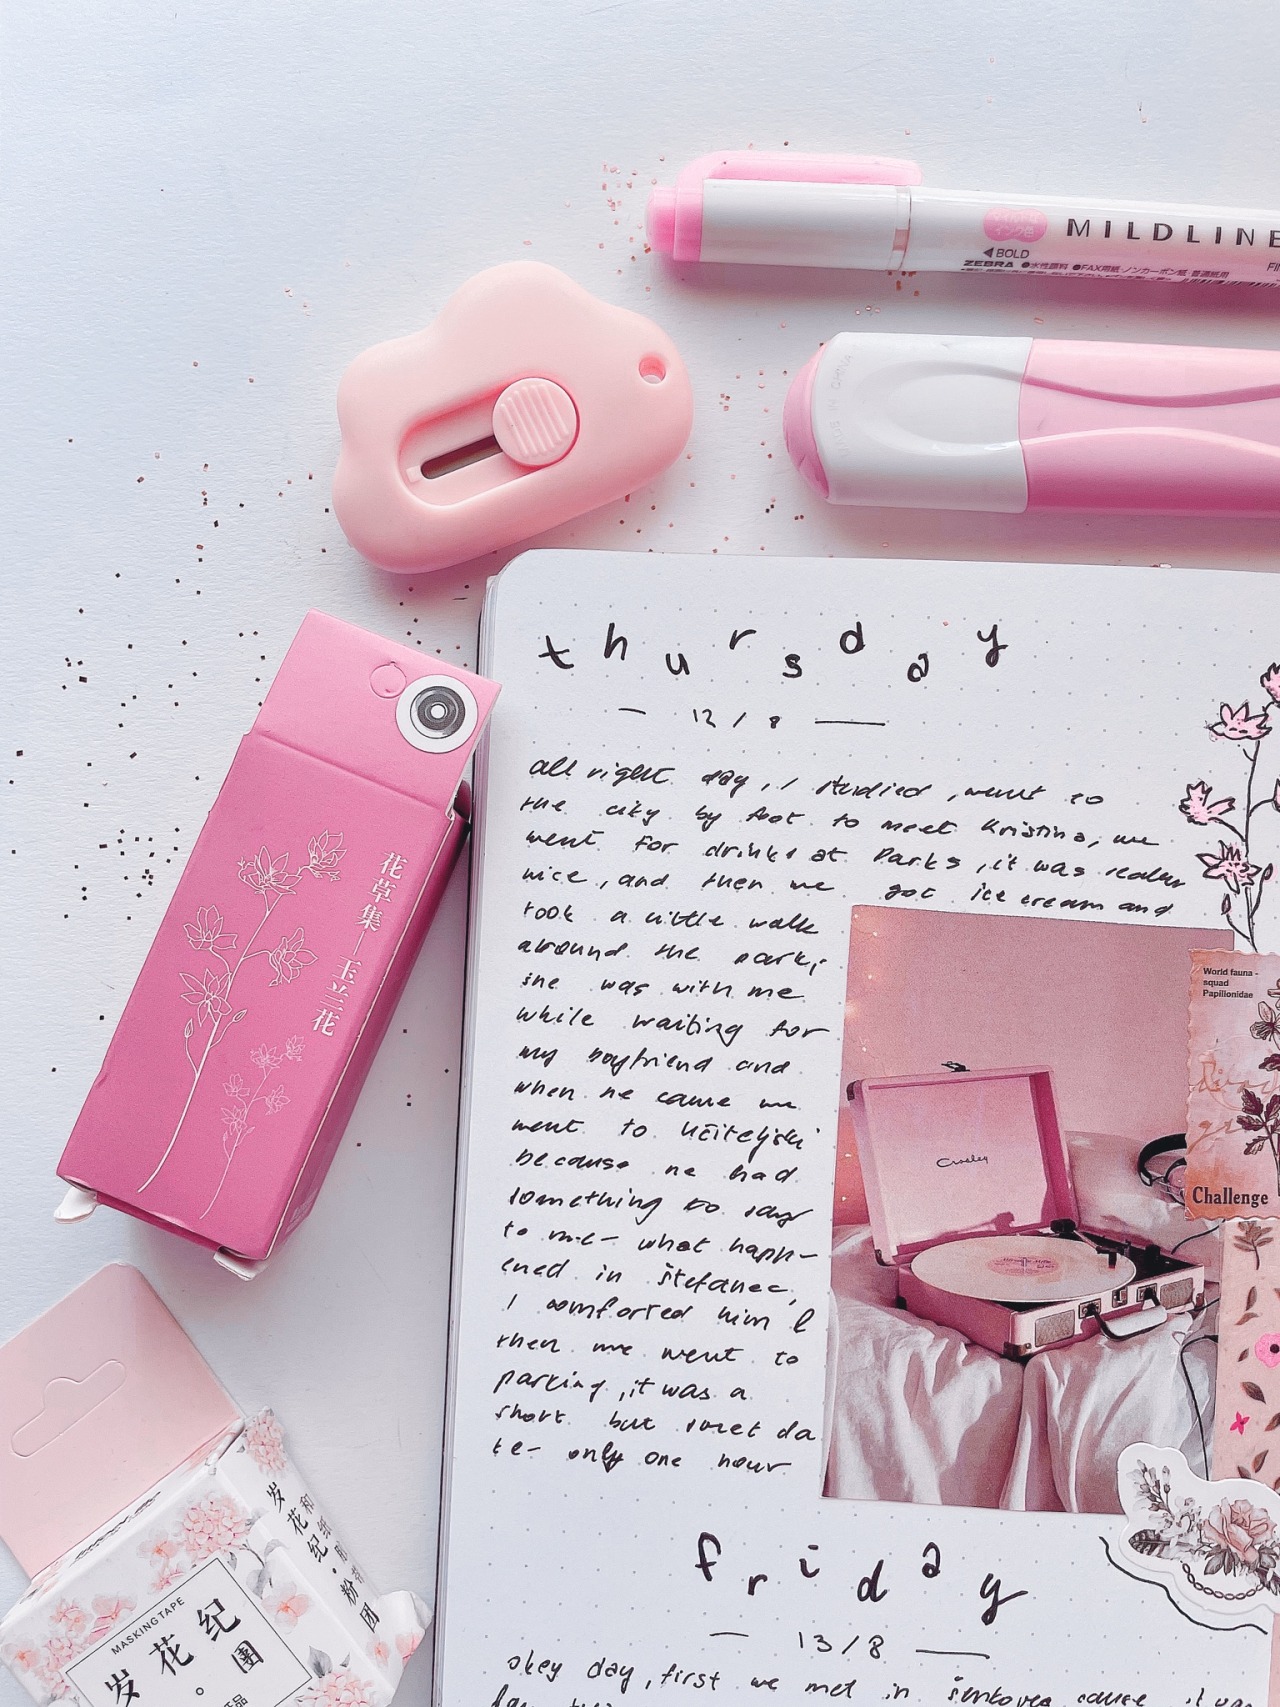 MILDLINE
BOLD
ZEBRA ●水性顔料 ●FAX用紙・ノンカーボン紙・普通紙用
MADE IN CHINA
thursday
12/8
all right day, I studied, went to
the city by foot to meet Kristina, we
went for drinks at Parks, it was really
nice, and then we got ice cream and
took a little walk
around the park,
she was with me
while waiting for
my boyfriend and
when he came we
went to Učiteljski
because he had
something to say
to me- what happ-
ened in Štefanec,
I comforted him &
then we went to
parking, it was a
short but sweet da
te- only one hour
Crosley
World fauna -
squad
Papilionidae
Challenge
friday
13/8
okey day, first we met in cause
花草集—玉兰花
发花纪·粉团
和纸胶带
MASKING TAPE
发花纪
團